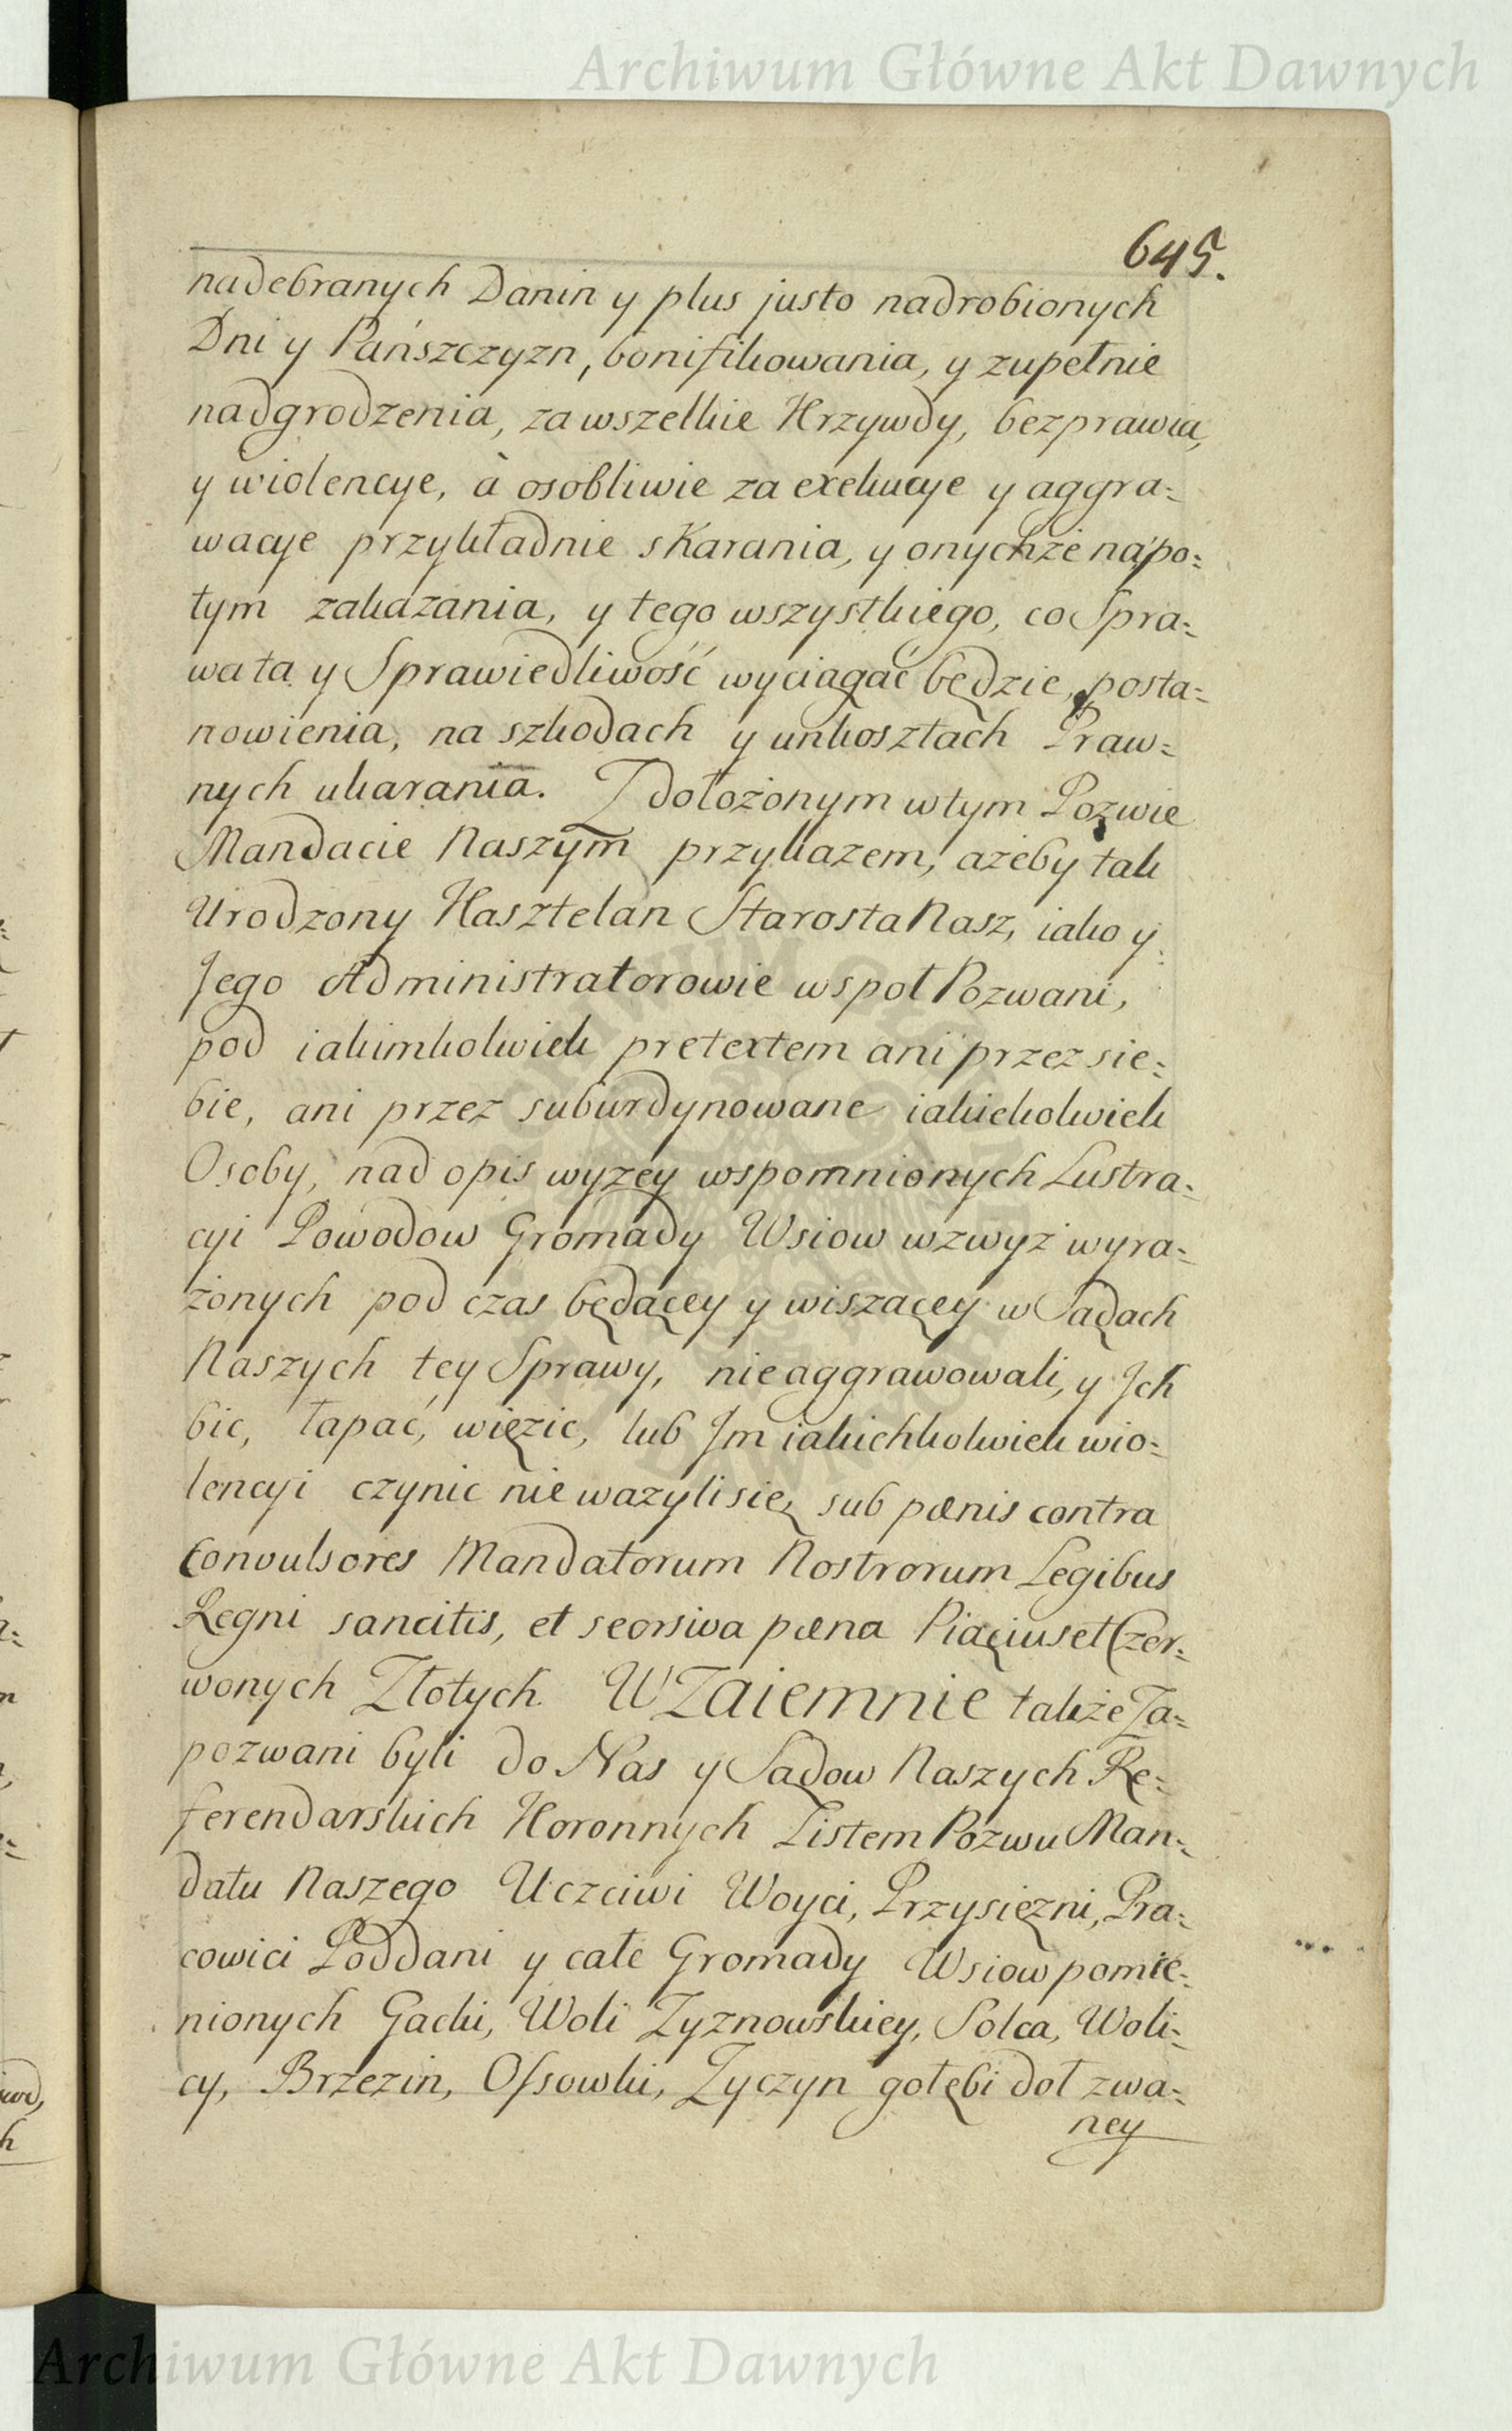 Archiwum Główne Akt Dawnych
645.
nadebranych Danin y plus justo nadrobionych
Dni y Pańszczyzn, bonifikowania, y zupełnie
nadgrodzenia, za wszelkie Krzywdy, bezprawia,
y wiolencye, à osobliwie za exekucye y aggra=
wacye przykładnie skarania, y onychże napo=
tym zakazania, y tego wszystkiego, co Spra=
wa ta y Sprawiedliwość wyciągać będzie, posta=
nowienia, na szkodach y unkosztach Praw=
nych ukarania. Z dołożonym w tym Pozwie
Mandacie Naszym przykazem, ażeby tak
Urodzony Kasztelan Starosta Nasz, iako y
Jego Administratorowie wspoł Pozwani,
pod iakimkolwiek pretextem ani przez sie=
bie, ani przez suburdynowane iakiekolwiek
Osoby, nad opis wyzey wspomnionych Lustra=
cyi Powodow Gromady Wsiow wzwyż wyra=
żonych pod czas będącey y wiszącey w Sądach
Naszych tey Sprawy, nie aggrawowali, y Ich
bic, łapać, więzic, lub Im iakichkolwiek wio=
lencyi czynic nie wazyli się, sub pœnis contra
Convulsores Mandatorum Nostrorum Legibus
Regni sancitis, et seorsiva pœna Piąciuset Czer=
wonych Złotych. WZaiemnie także Za=
pozwani byli do Nas y Sądow Naszych Re=
ferendarskich Koronnych Listem Pozwu Man=
datu Naszego Uczciwi Woyci, Przysiężni, Pra=
cowici Poddani y całe Gromady Wsiow pomie=
nionych Gacki, Woli Zyznowskiey, Solca, Woli=
cy, Brzezin, Ossowki, Zyczyn gołębi doł zwa=
ney
Archiwum Główne Akt Dawnych